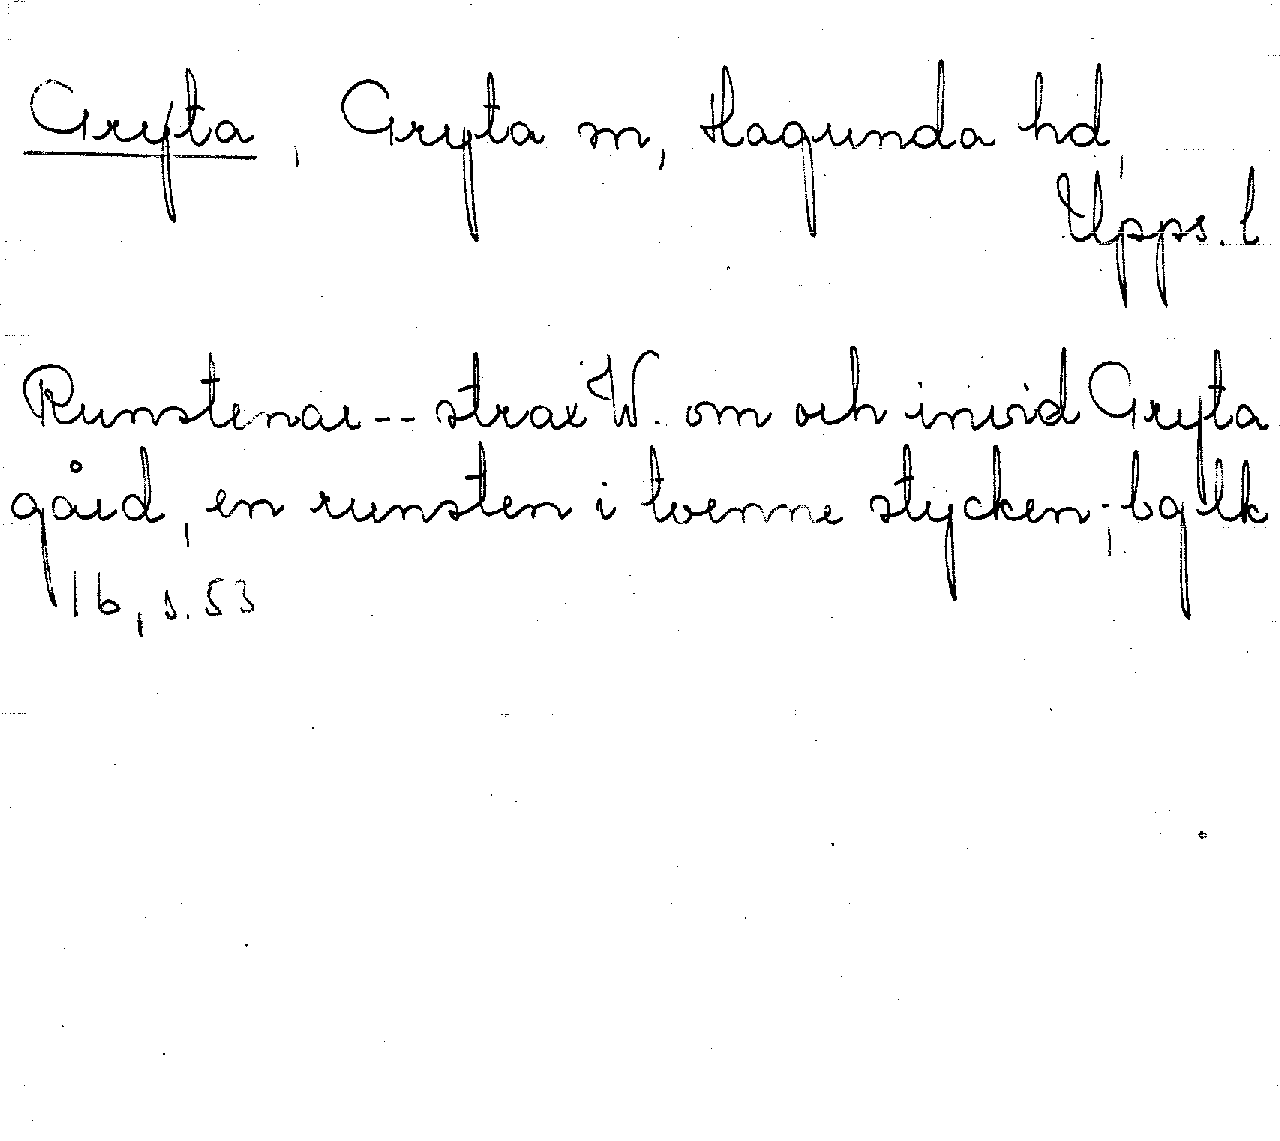 Gryta, Gryta sn, Hagunda hd,
Upps. l
Runstenar -- strax W. om och invid Gryta
gård, en runsten i tvenne stycken; bglk
16, s. 53